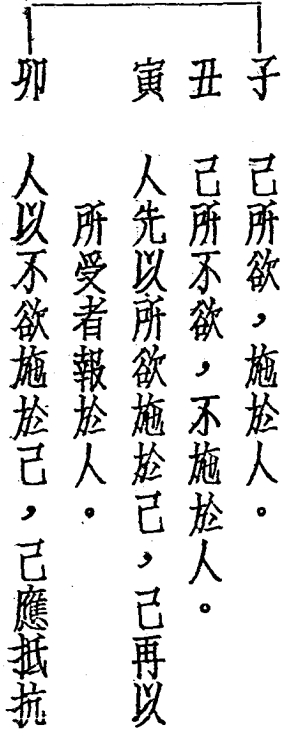 子　己所欲，施於人。
丑　己所不欲，不施於人。
寅　人先以所欲施於己，己再以
所受者報於人。
卯　人以不欲施於己，己應抵抗